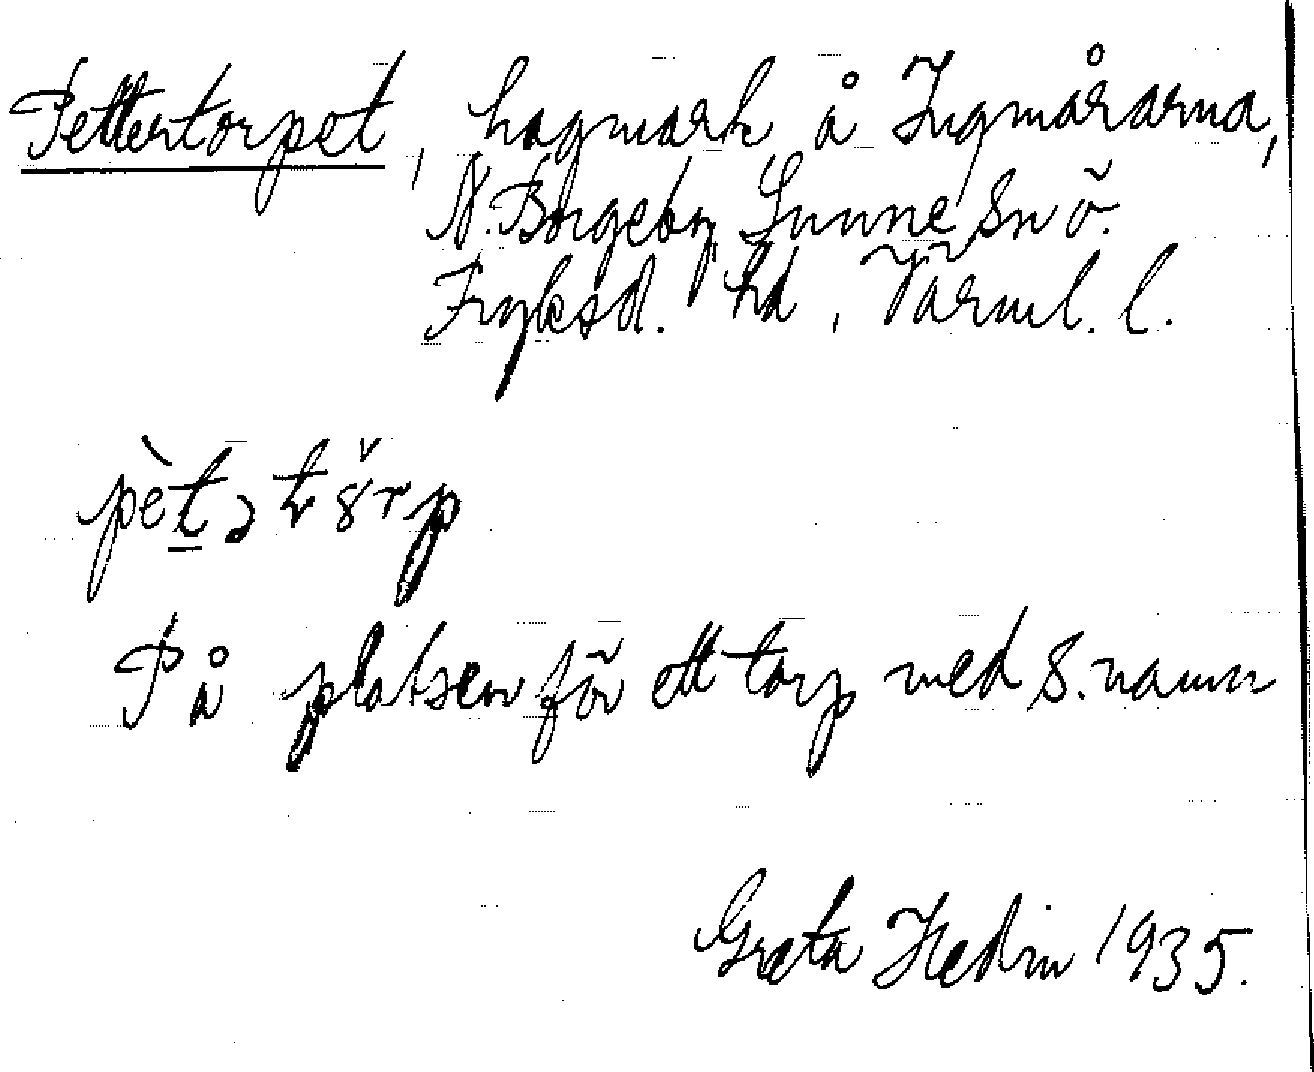 Pettertorpet, hagmark å Ingmårarna,
N. Borgeby, Sunne sn ö.
Fryksd. hd, Värml. l.
pètətö̌rp
På platsen för ett torp med s. namn
Greta Hedin 1935.